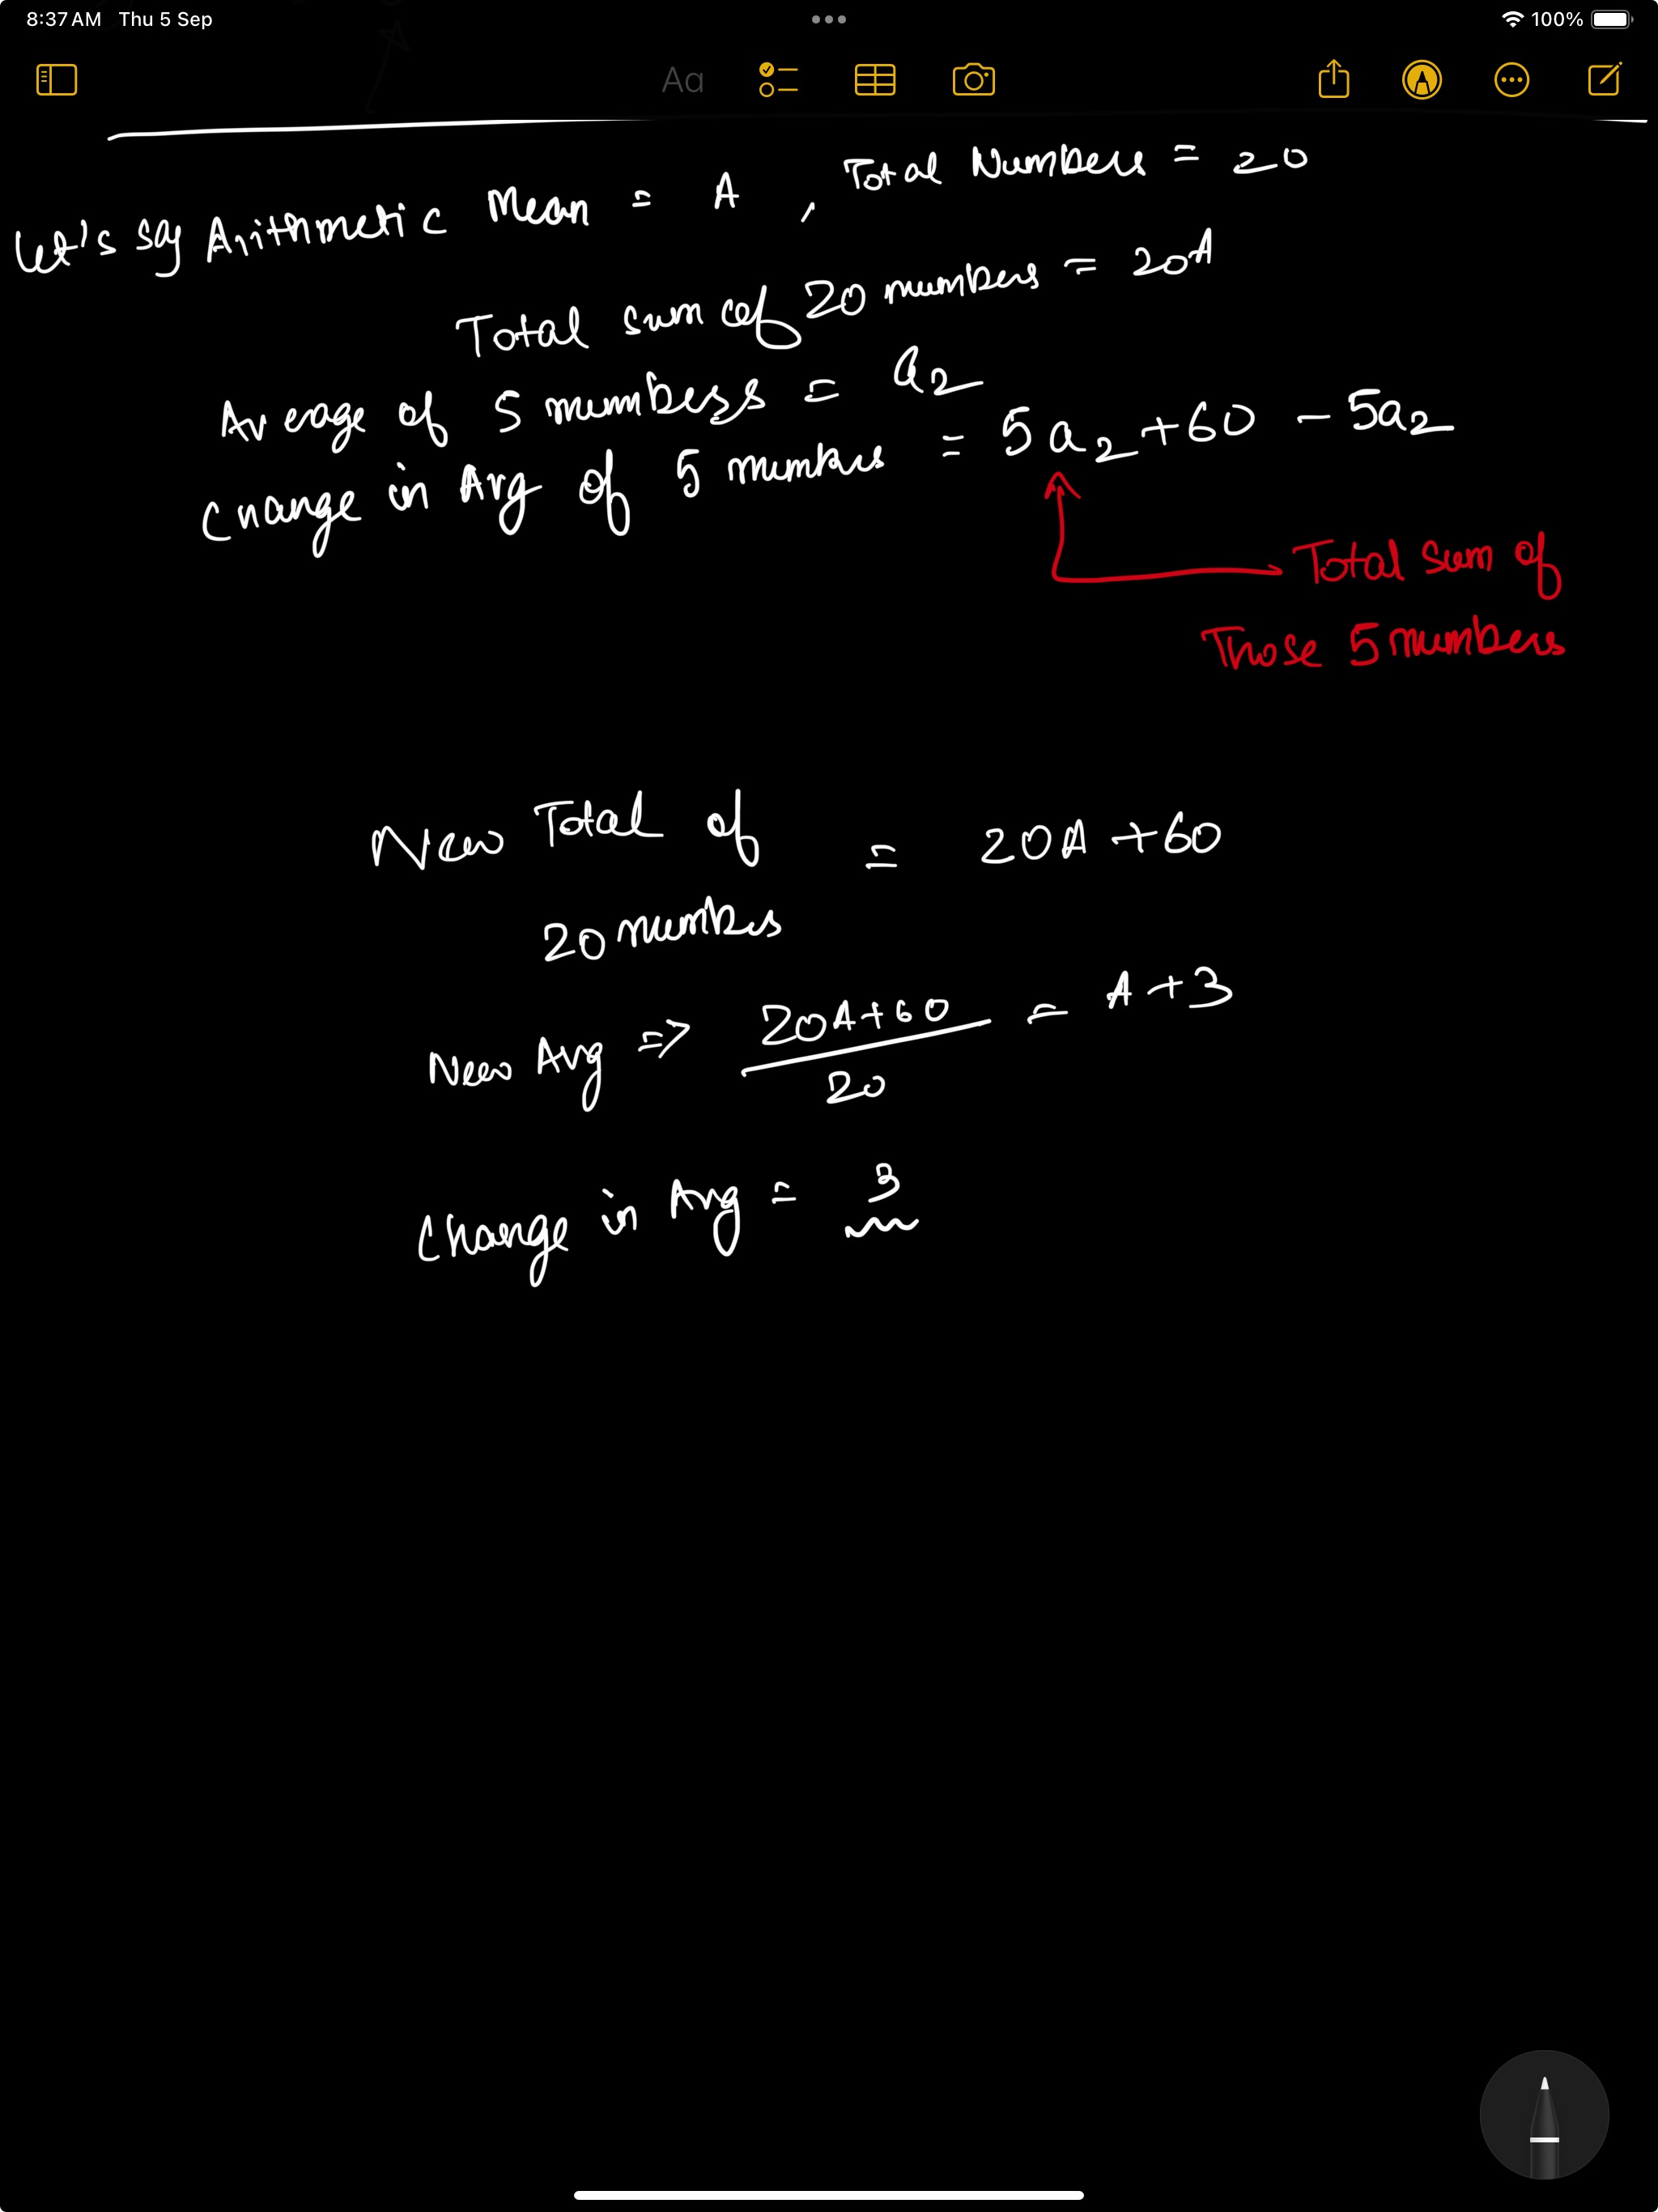 8:37 AM Thu 5 Sep
100%
Aa
Let's say Arithmetic Mean = A , Total Numbers = 20
Total sum of 20 numbers = 20A
Average of 5 numbers = a₂
Change in Avg of 5 numbers = 5a₂ + 60 - 5a₂
Total sum of
Those 5 numbers
New Total of = 20A + 60
20 numbers
New Avg => 20A+60 / 20 = A+3
Change in Avg = 3